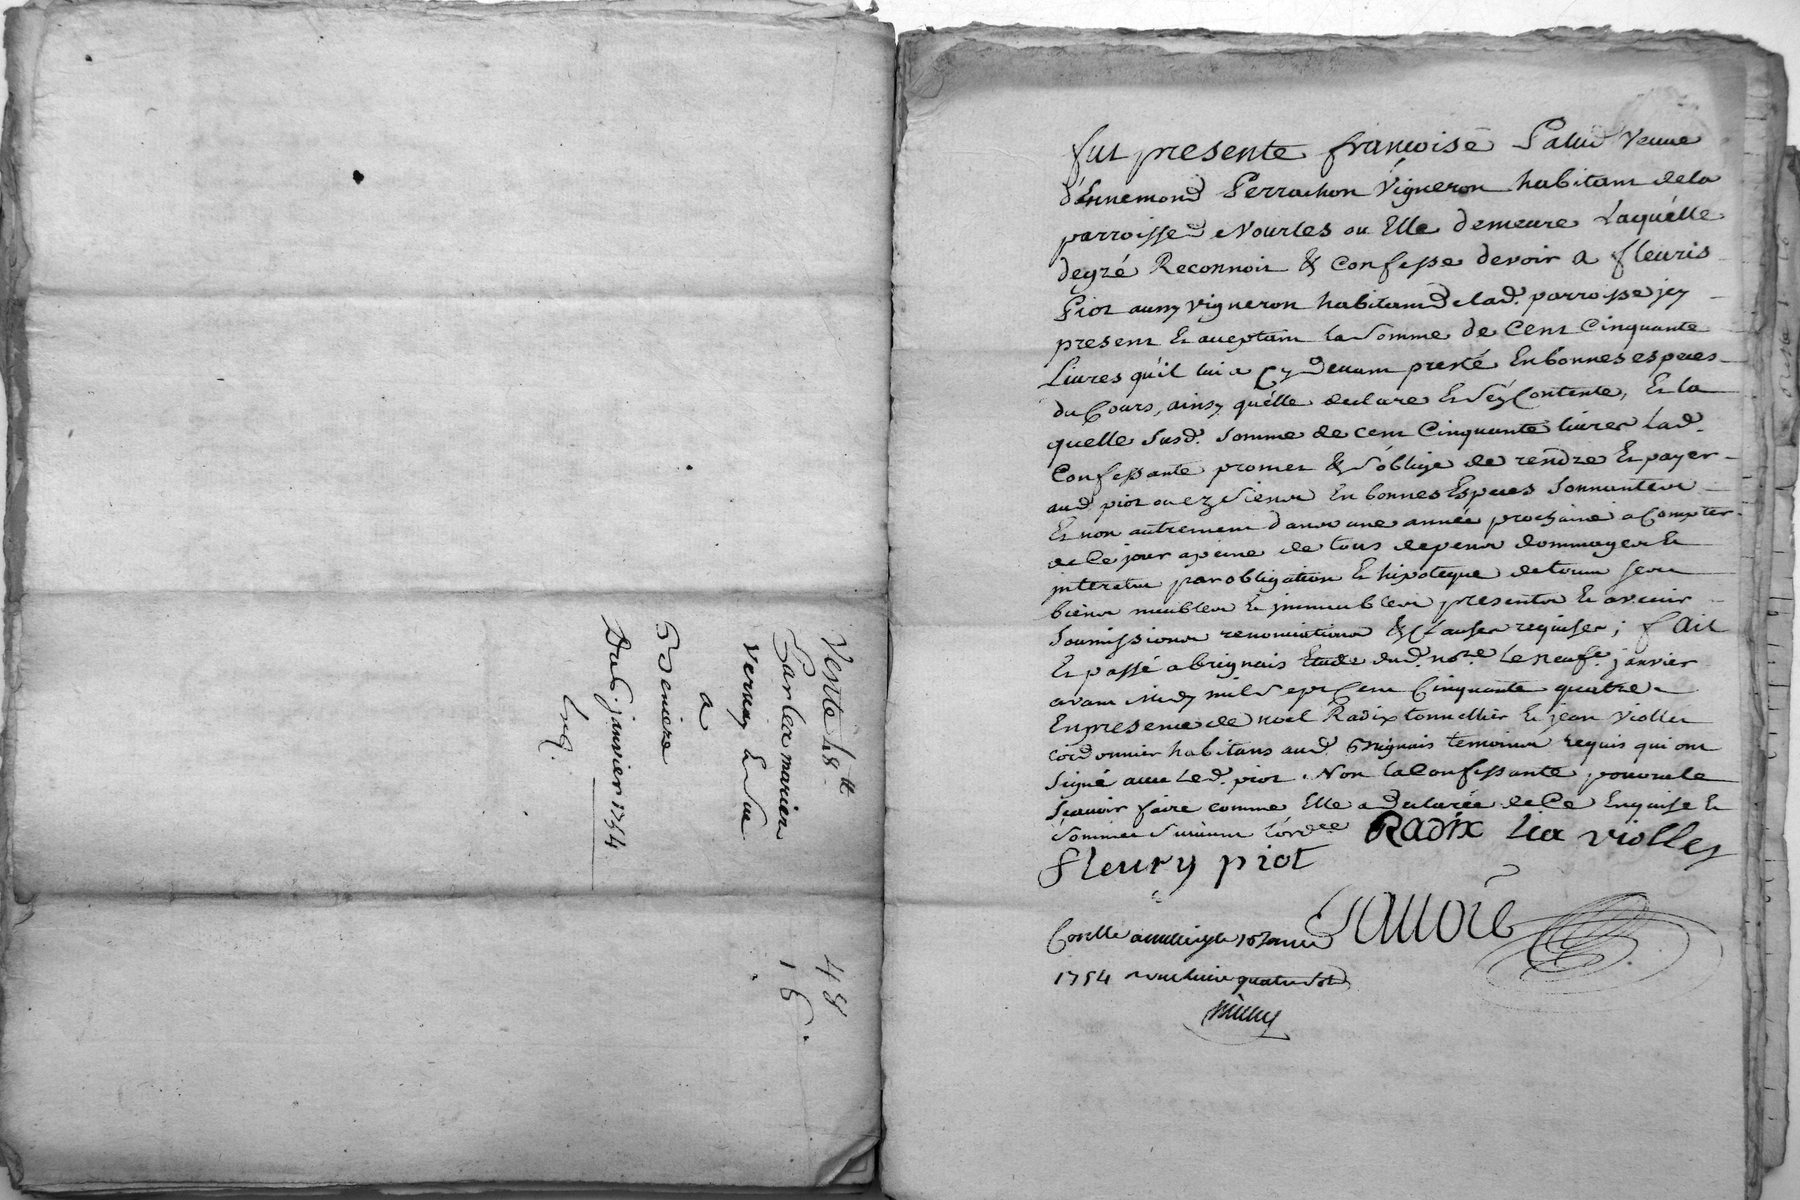 Vente 48.tt
Par les mariez
Vernay & Sve
a
B Deniere
Du 6. janvier 1754
Enq.
48
16.
fut presente francoise Palud Veuve
d'Ennemond Perrachon Vigneron habitant de la
parroisse d Vourles ou Elle demeure Laquelle
degré Reconnoit & Confesse devoir a fleuris
Piot aussy vigneron habitant de lad. parroisse jcy
present Et aceptant la Somme de Cent Cinquante
Livres qu'il lui a Cy devant presté En bonnes especes
du Cours, ainsy qu'elle declare Et S'en Contente, Et la
quelle Susd. Somme de cent Cinquante livres Lad.
Confessante promet & S'oblige de rendre Et payer
aud piot ou ez Siens En bonnes Especes Sonnantes
Et non autrement dans une année prochaine a Compter
de Ce jour a peine de tous depens dommages Et
jnterets par obligation Et hipoteque de tous ses
biens meubles Et jmmeubles presents Et avenir
Soumissions renonciations & Clauses requises ; fait
Et passé a brignais Etude dud. no.re Le neufe. janvier
avant midy mil Sept Cent Cinquante quatre
En presence de noel Radix tonnellier Et jean Viollet
cordonnier habitans aud. Brignais temoins requis qui ont
Signé avec Led. piot. Non la Confessante pour ne le
Scavoir faire comme Elle a declarée de Ce Enquise Et
Sommée Suivant l'ord.ce Radix viollet
fleury piot
Conllé 10 Janvier
1754 une livre quatre Sols